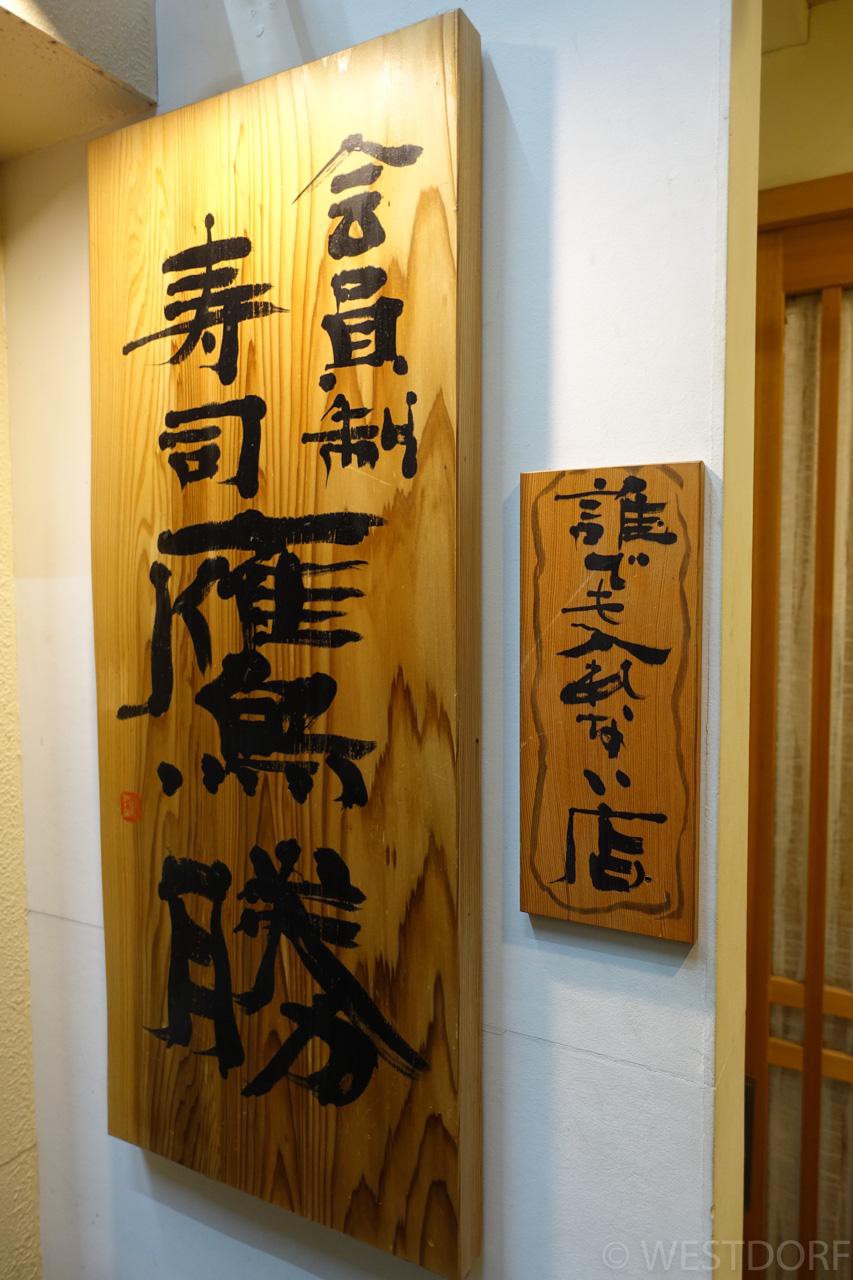 会員制
寿司
鷹勝
誰でも入れない店
© WESTDORF